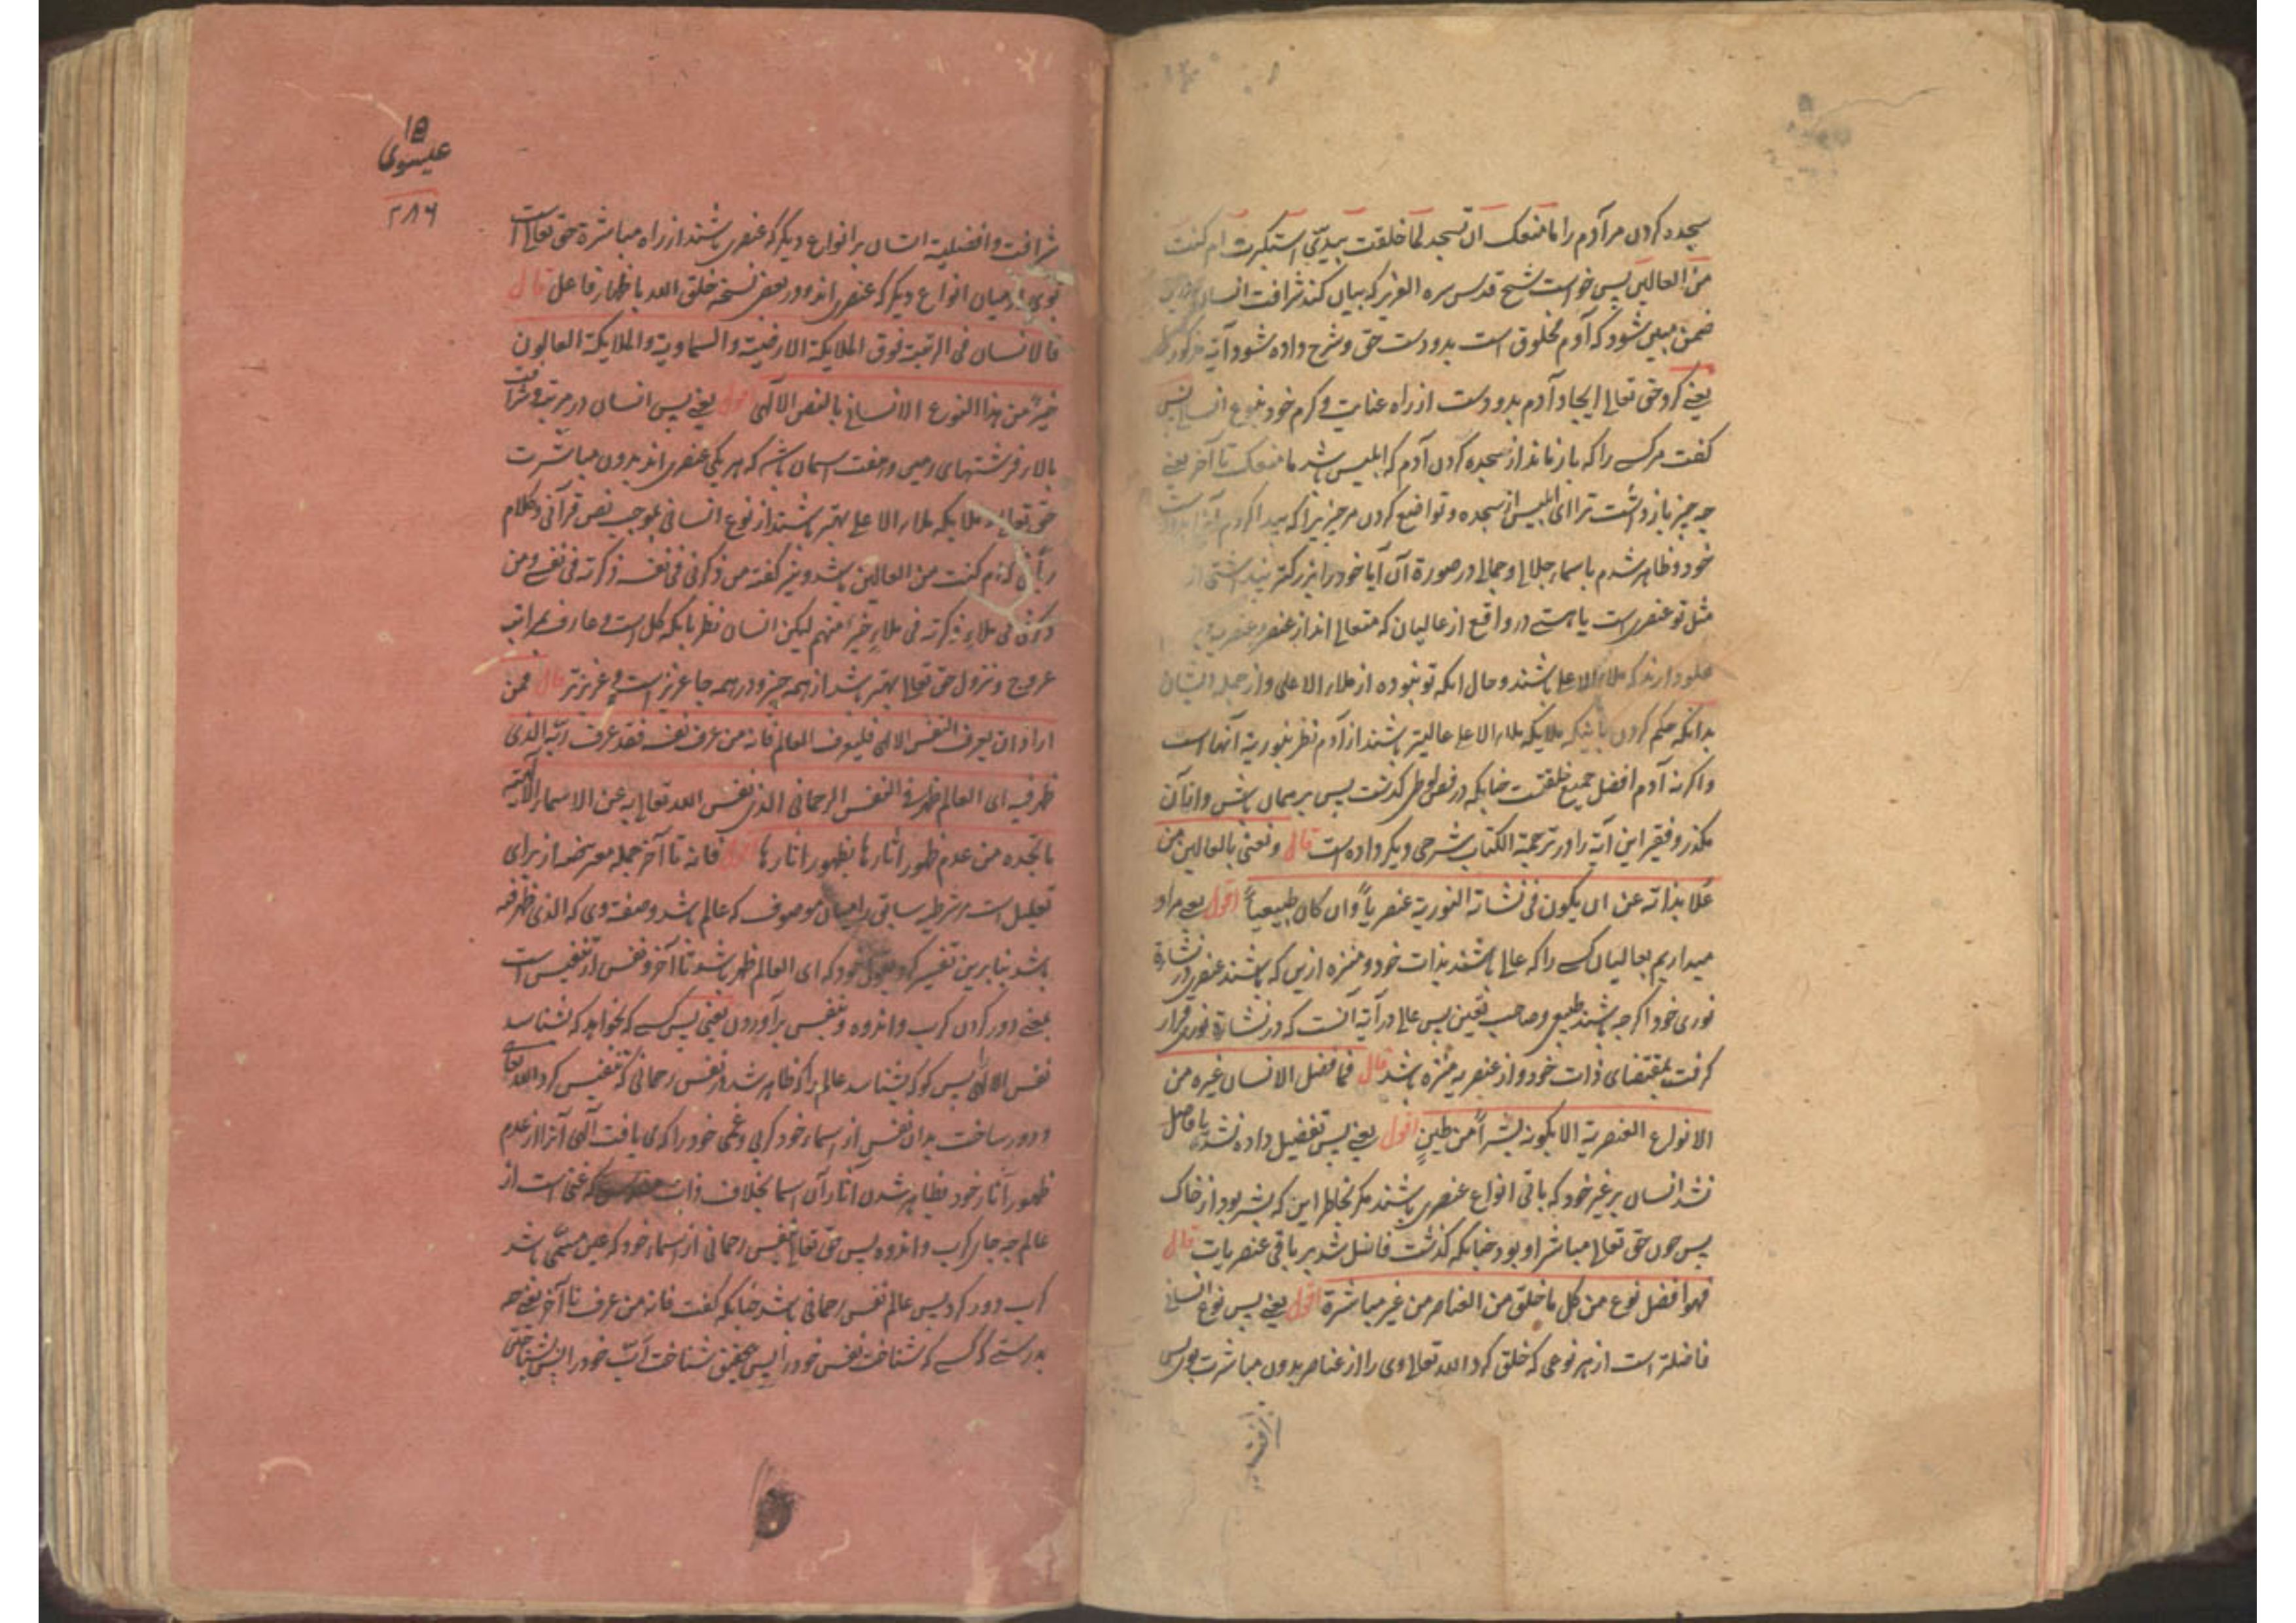 سجده کردن مر آدم را ما منعک ان تسجد لما خلقت بیدیّ استکبرت ام کنت
من العالین پس خواست شیخ قدس سره العزیز که بیان کند شرافت انسان
ضمن مبین شود که آدم مخلوق است بدو دست حق و شرح داده شود آیه مذکور
یعنی کرد حق تعالی ایجاد آدم بدو دست از راه عنایت و کرم خود بنوع انسانی پس
گفت مر کسی را که باز ماند از سجده کردن آدم که ابلیس باشد ما منعک تا آخر یعنی
چه چیز باز داشت ترا ای ابلیس از سجده و تواضع کردن مر چیزیرا که پیدا کردم
خود و ظاهر شدم باسماء جلالی و جمالی در صورة آن آیا خود را بزرکتر پنداشتی از
مثل تو عنصریست یا هستی در واقع از عالیان که متعالی اند از عنصر و عنصریه
علو دارند که ملاء الاعلی باشند و حال انکه تو نبوده از ملاء الاعلی و از جمله ایشان
بدانکه حکم کردن باینکه ملایکه ملاء الاعلی عالیتر باشند از آدم نظر بنوریة آنها است
و اکرنه آدم افضل جمیع خلقتست چنانکه در فص لوطی کذشت پس بر همان باش و از آن
مکذر و فقیر این آیة را در ترجمة الکتاب شرحی دیکر داده است قال و نعنی بالعالین من
علا بذاته عن ان یکون فی نشاته النوریة عنصریاً و ان کان طبیعیاً اقول یعنی مراد
میداریم بعالیان کسی را که عالی باشند بذات خود و منزه ازین که باشند عنصری در نشارة
نوری خود اکر چه باشند طبیعی و صاحب تعین پس عالی در آیة آنست که در نشارة نوری قرار
کرفت بمقتضای ذات خود و از عنصریه منزه باشد قال فما فضل الانسان غیره من
الانواع العنصریة الا بکونه بشراً من طین اقول یعنی پس تفضیل داده نشد یا فاضل
نشد انسان بر غیر خود که باقی انواع عنصری باشند مکر بخاطر این که بشر بود از خاک
پس چون حق تعالی مباشر او بود چنانکه کذشت فاضل شد بر باقی عنصریات قال
فهو افضل نوع من کل ما خلق من العناصر من غیر مباشرة اقول یعنی پس نوع انسانی
فاضلتر است از هر نوعی که خلق کرد الله تعالی وی را از عناصر بدون مباشرت پس
۱۵
عیسوی
۲۸۶
شرافت و افضلیة انسان بر انواع دیکر که عنصری باشند از راه مباشرة حق تعالی است
بوی از میان انواع دیکر که عنصری اند و در بعض نسخه خلق الله باظهار فاعل قال
فالانسان فی الرتبة فوق الملایکة الارضیة و السماویة و الملایکة العالون
خیر من هذا النوع الانسانی بالنص الالهی اقول یعنی پس انسان در مرتبه و شرافت
بالاتر فرشتهای زمین و هفت اسمان باشد که هر یکی عنصری اند بدون مباشرت
حق تعالی و ملایکه ملاء الاعلی بهتر باشند از نوع انسانی بموجب نص قرآنی و کلام
ربانی که ام کنت من العالین باشد و نیز کفته من ذکرنی فی نفسه ذکرته فی نفسی و من
ذکرنی فی ملاءٍ ذکرته فی ملاءٍ خیر منهم لیکن انسان نظر بانکه کل است و عارف بمراتب
عروج و نزول حق تعالی بهتر باشد از همه چیز و در همه جا عزیز است و عزیزتر قال فمن
اراد ان یعرف النفس الالهی فلیعرف العالم فانه من عرف نفسه فقد عرف ربّه الذی
ظهر فیه ای العالم ظهر فی النفس الرحمانی الذی نفس الله تعالی به عن الاسماء الالهیة
ما تجده من عدم ظهور آثارها بظهور اثارها اقول فانه تا آخر جمله معترضه از برای
تعلیل است مر شرطیه سابق را میان موصوف که عالم باشد و صفت وی که الذی ظهر فیه
باشد بنابرین تفسیر کرد بقول خود که ای العالم ظهر باشد تا آخر و نفس از تنفیس است
بمعنی دور کردن کرب و اندوه و تنفیس برآوردن یعنی پس کسی که بخواهد که بشناسد
نفس الالهی پس کو که بشناسد عالم را که ظاهر شد در نفس رحمانی که تنفیس کرد الله تعالی
و دور ساخت بدان نفس از اسماء خود کربی و غمی خود را که می یافت آلهی آنرا از عدم
ظهور آثار خود بظاهر شدن آثار آن اسما بخلاف ذات که غنی است از
عالم چه جای کرب و اندوه پس حق تعالی بنفس رحمانی از اسماء خود که عین مسمّی باشد
کرب دور کرد پس عالم نفس رحمانی باشد چنانکه کفت فانه من عرف تا آخر یعنی چه
بدرستی که کسی که شناخت نفس خود را پس بتحقیق شناخت ربّ خود را